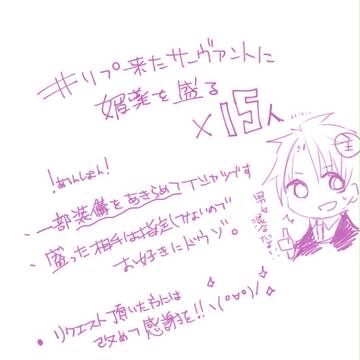 #リプ来たサーヴァントに
媚薬を盛る
×15人
!あてんしょん!
・一部装備をあきらめてTシャツです
・盛った相手は指定してないので
お好きにドウゾ。
・リクエスト頂いた方には
改めて感謝を!!ヽ(○∀○)/